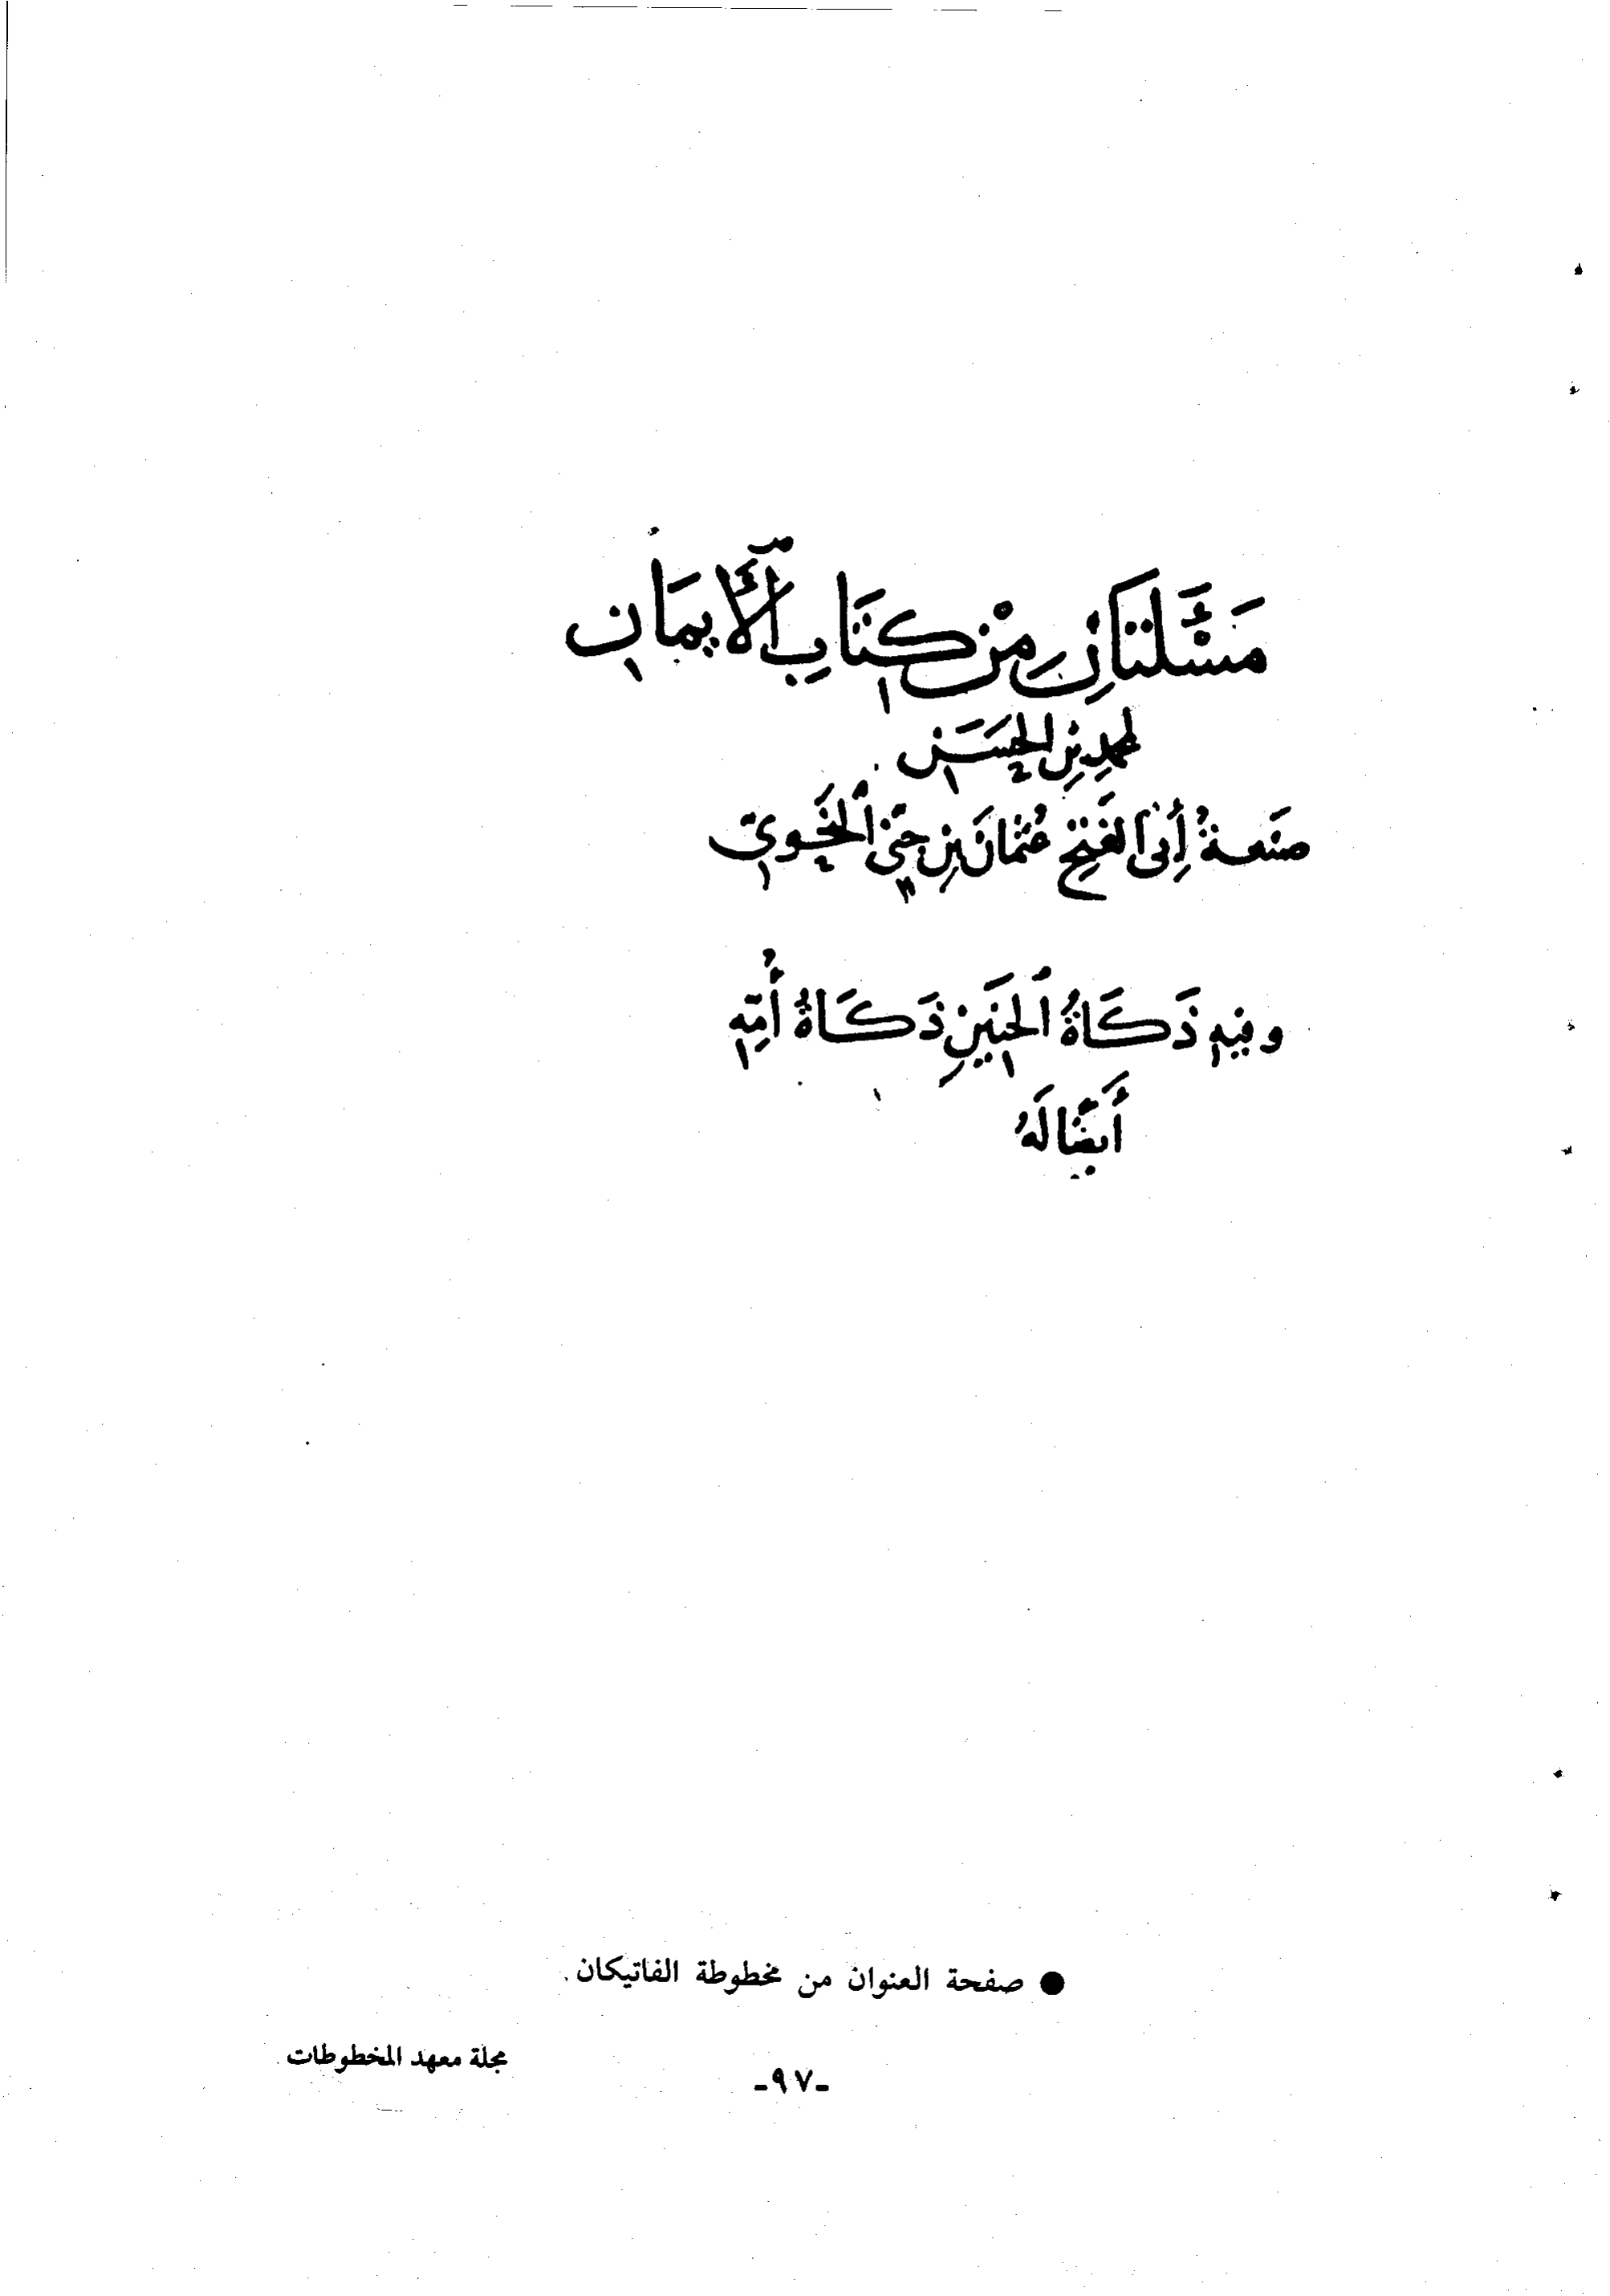 مَسْئَلَتَانِ مِنْ كِتَابِ الْأَيمَانِ
لمحمدِ بنِ الحسَنِ
صَنعة أَبِى الفَتحِ عُثْمَانَ بنِ جِنِّى النَّحْوِىّ
وفيه ذَكَاةُ الجَنِينِ ذَكَاةُ أُمِّهِ
أَيضًا لَهُ
● صفحة العنوان من مخطوطة الفاتيكان.
مجلة معهد المخطوطات
-٩٧-